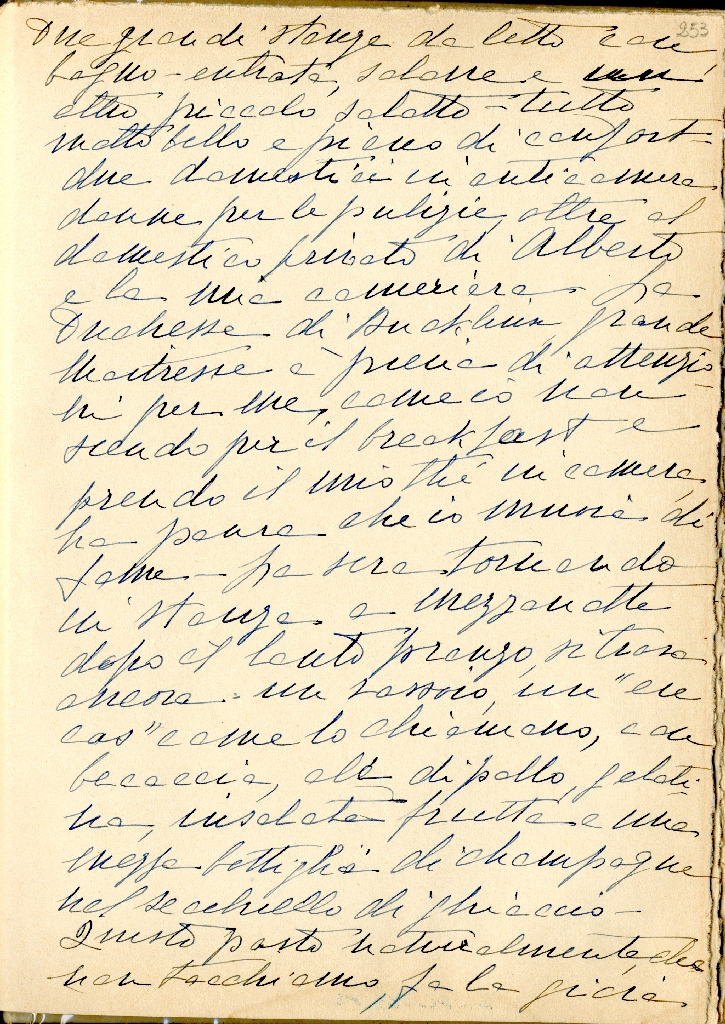 253
Due grandi stanze da letto con
bagno - entrata, salone e un
altro piccolo salotto - tutto
molto bello e pieno di confort -
due domestici in anticamera
donne per le pulizie, oltre al
domestico privato di Alberto
e la mia cameriera - La
Duchesse di Buckleuin, grande
Maitresse è piena di attenzio-
ni per me, come io non
scendo per il breakfast e
prendo il mio thé in camera,
ha paura che io muoia di
fame - La sera tornando
in stanza a mezzanotte
dopo il lauto pranzo, si trova
ancora un vassoio, un "en
cas" come lo chiamano, con
beccaccia, ali di pollo, gelati-
na, insalata frutta e una
mezza bottiglia di champagne
nel secchiello di ghiaccio -
Questo pasto naturalmente, che
non tocchiamo, fa la gioia